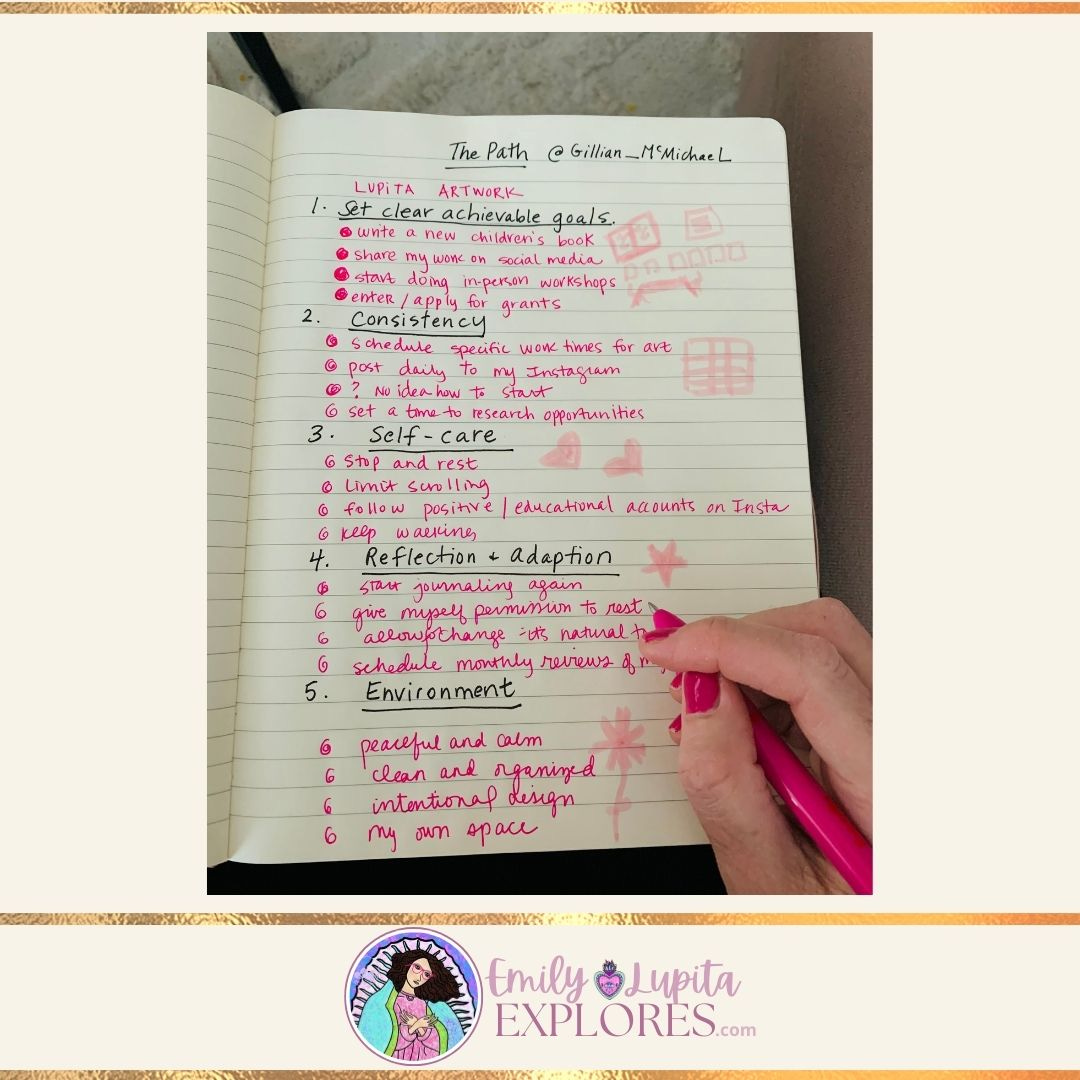 The Path @Gillian_McMichael
LUPITA ARTWORK
1. Set clear achievable goals.
write a new children's book
share my work on social media
start doing in-person workshops
enter / apply for grants
2. Consistency
schedule specific work times for art
post daily to my Instagram
? No idea how to start
set a time to research opportunities
3. Self-care
Stop and rest
Limit scrolling
follow positive / educational accounts on Insta
keep walking
4. Reflection + Adaption
start journaling again
give myself permission to rest
allow change - it's natural
schedule monthly reviews of
5. Environment
peaceful and calm
clean and organized
intentional design
my own space
Emily Lupita
EXPLORES.com